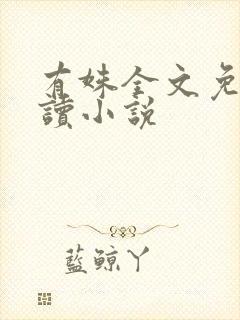 有妹全文免
讀小說
藍鯨丫